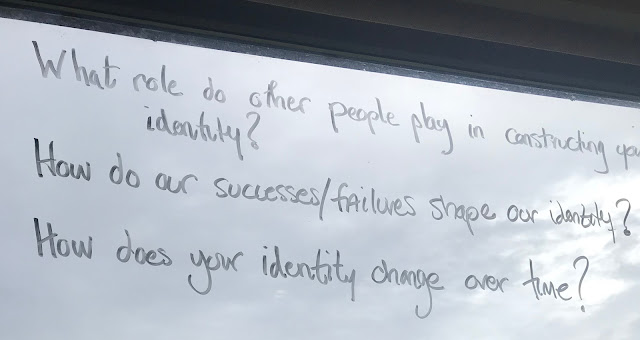 What role do other people play in constructing you
identity?
How do our successes/failures shape our identity?
How does your identity change over time?